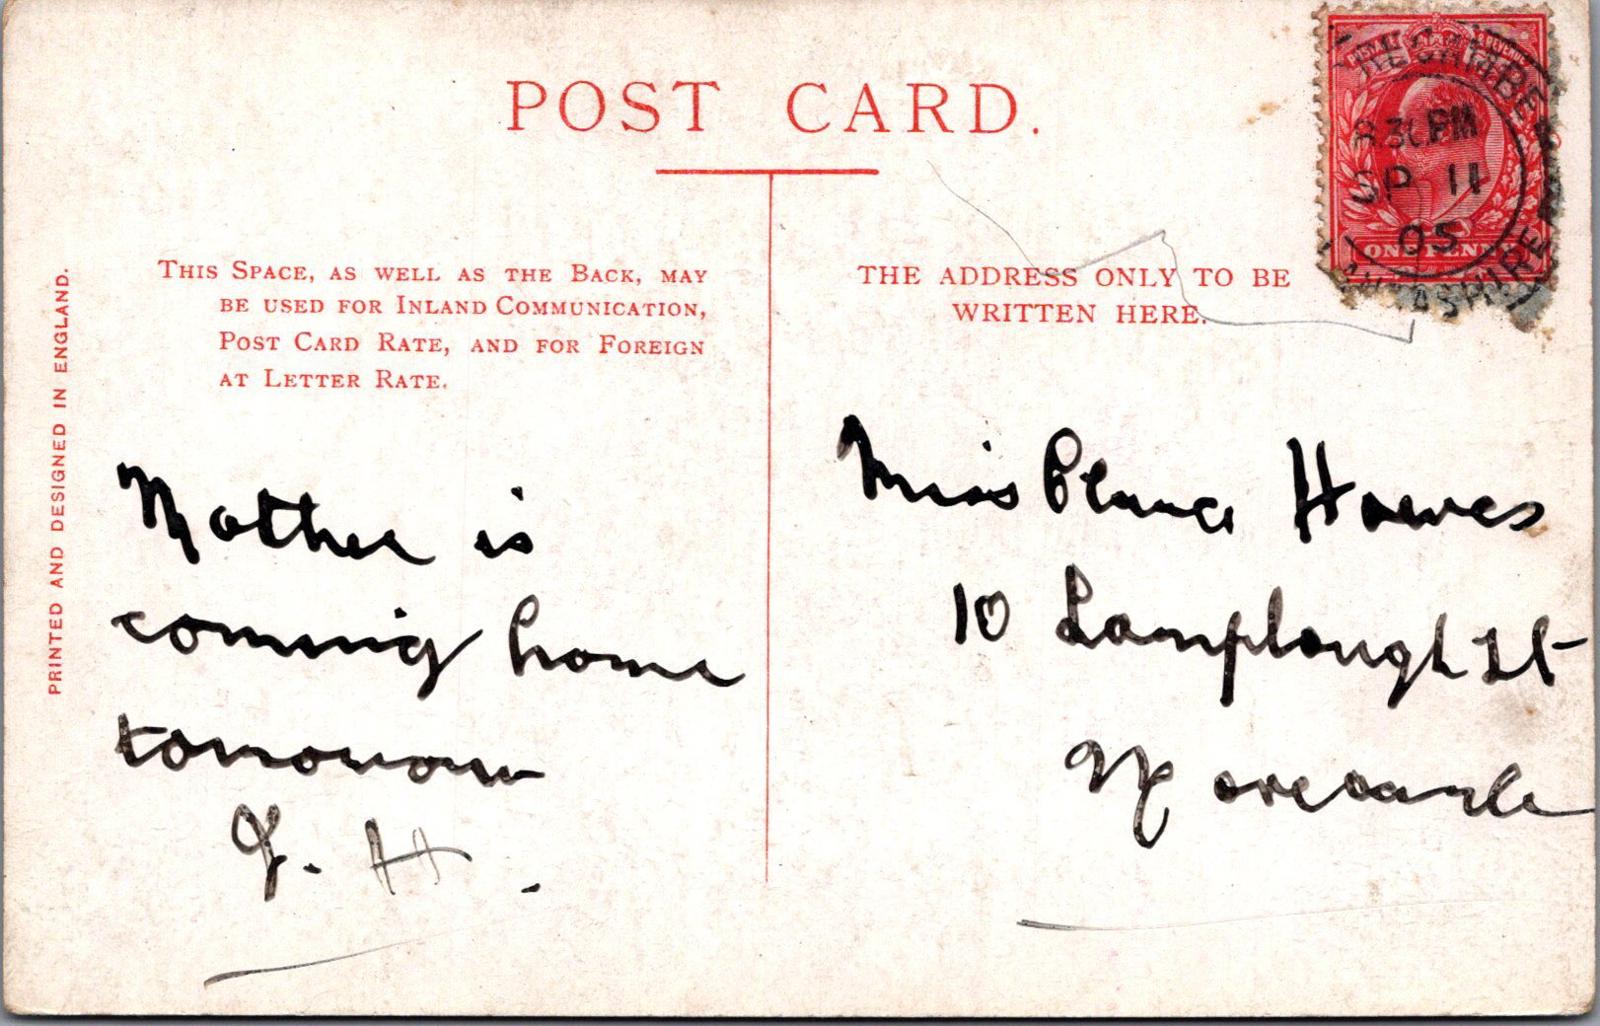 POST CARD.
THIS SPACE, AS WELL AS THE BACK, MAY
BE USED FOR INLAND COMMUNICATION,
POST CARD RATE, AND FOR FOREIGN
AT LETTER RATE.
THE ADDRESS ONLY TO BE
WRITTEN HERE.
PRINTED AND DESIGNED IN ENGLAND.
Mother is
coming home
tomorrow
J. H.
Miss Blance Hawes
10 Lamplough St
Morecambe
8.30 PM
SP 11
05
ONE PENNY